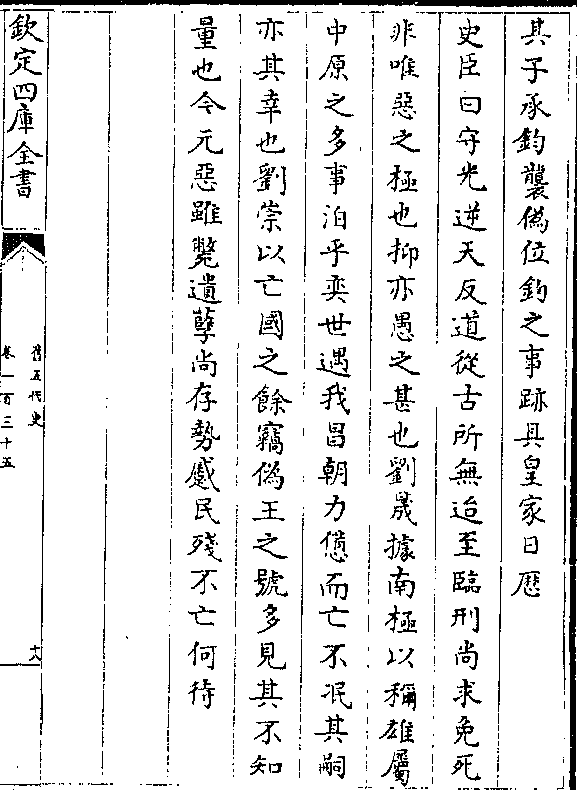 其子承鈞襲偽位鈞之事跡具皇家日厯
史臣曰守光逆天反道從古所無迨至臨刑尚求免死
非唯惡之極也抑亦愚之甚也劉晟據南極以稱雄屬
中原之多事洎乎奕世遇我昌朝力憊而亡不泯其嗣
亦其幸也劉崇以亡國之餘竊偽王之號多見其不知
量也今元惡雖斃遺孽尚存勢蹙民殘不亡何待
欽定四庫全書
舊五代史
卷一百三十五
十八